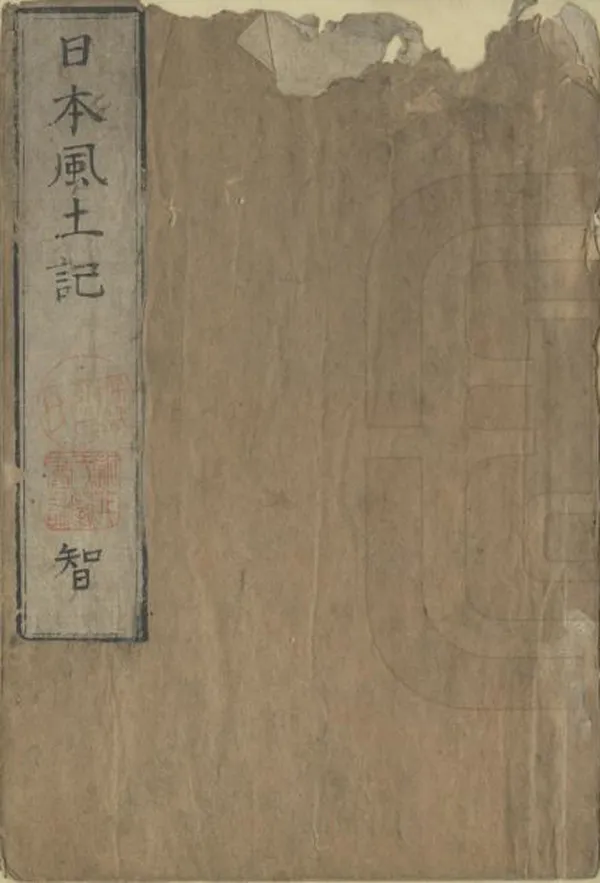 日本風土記
智